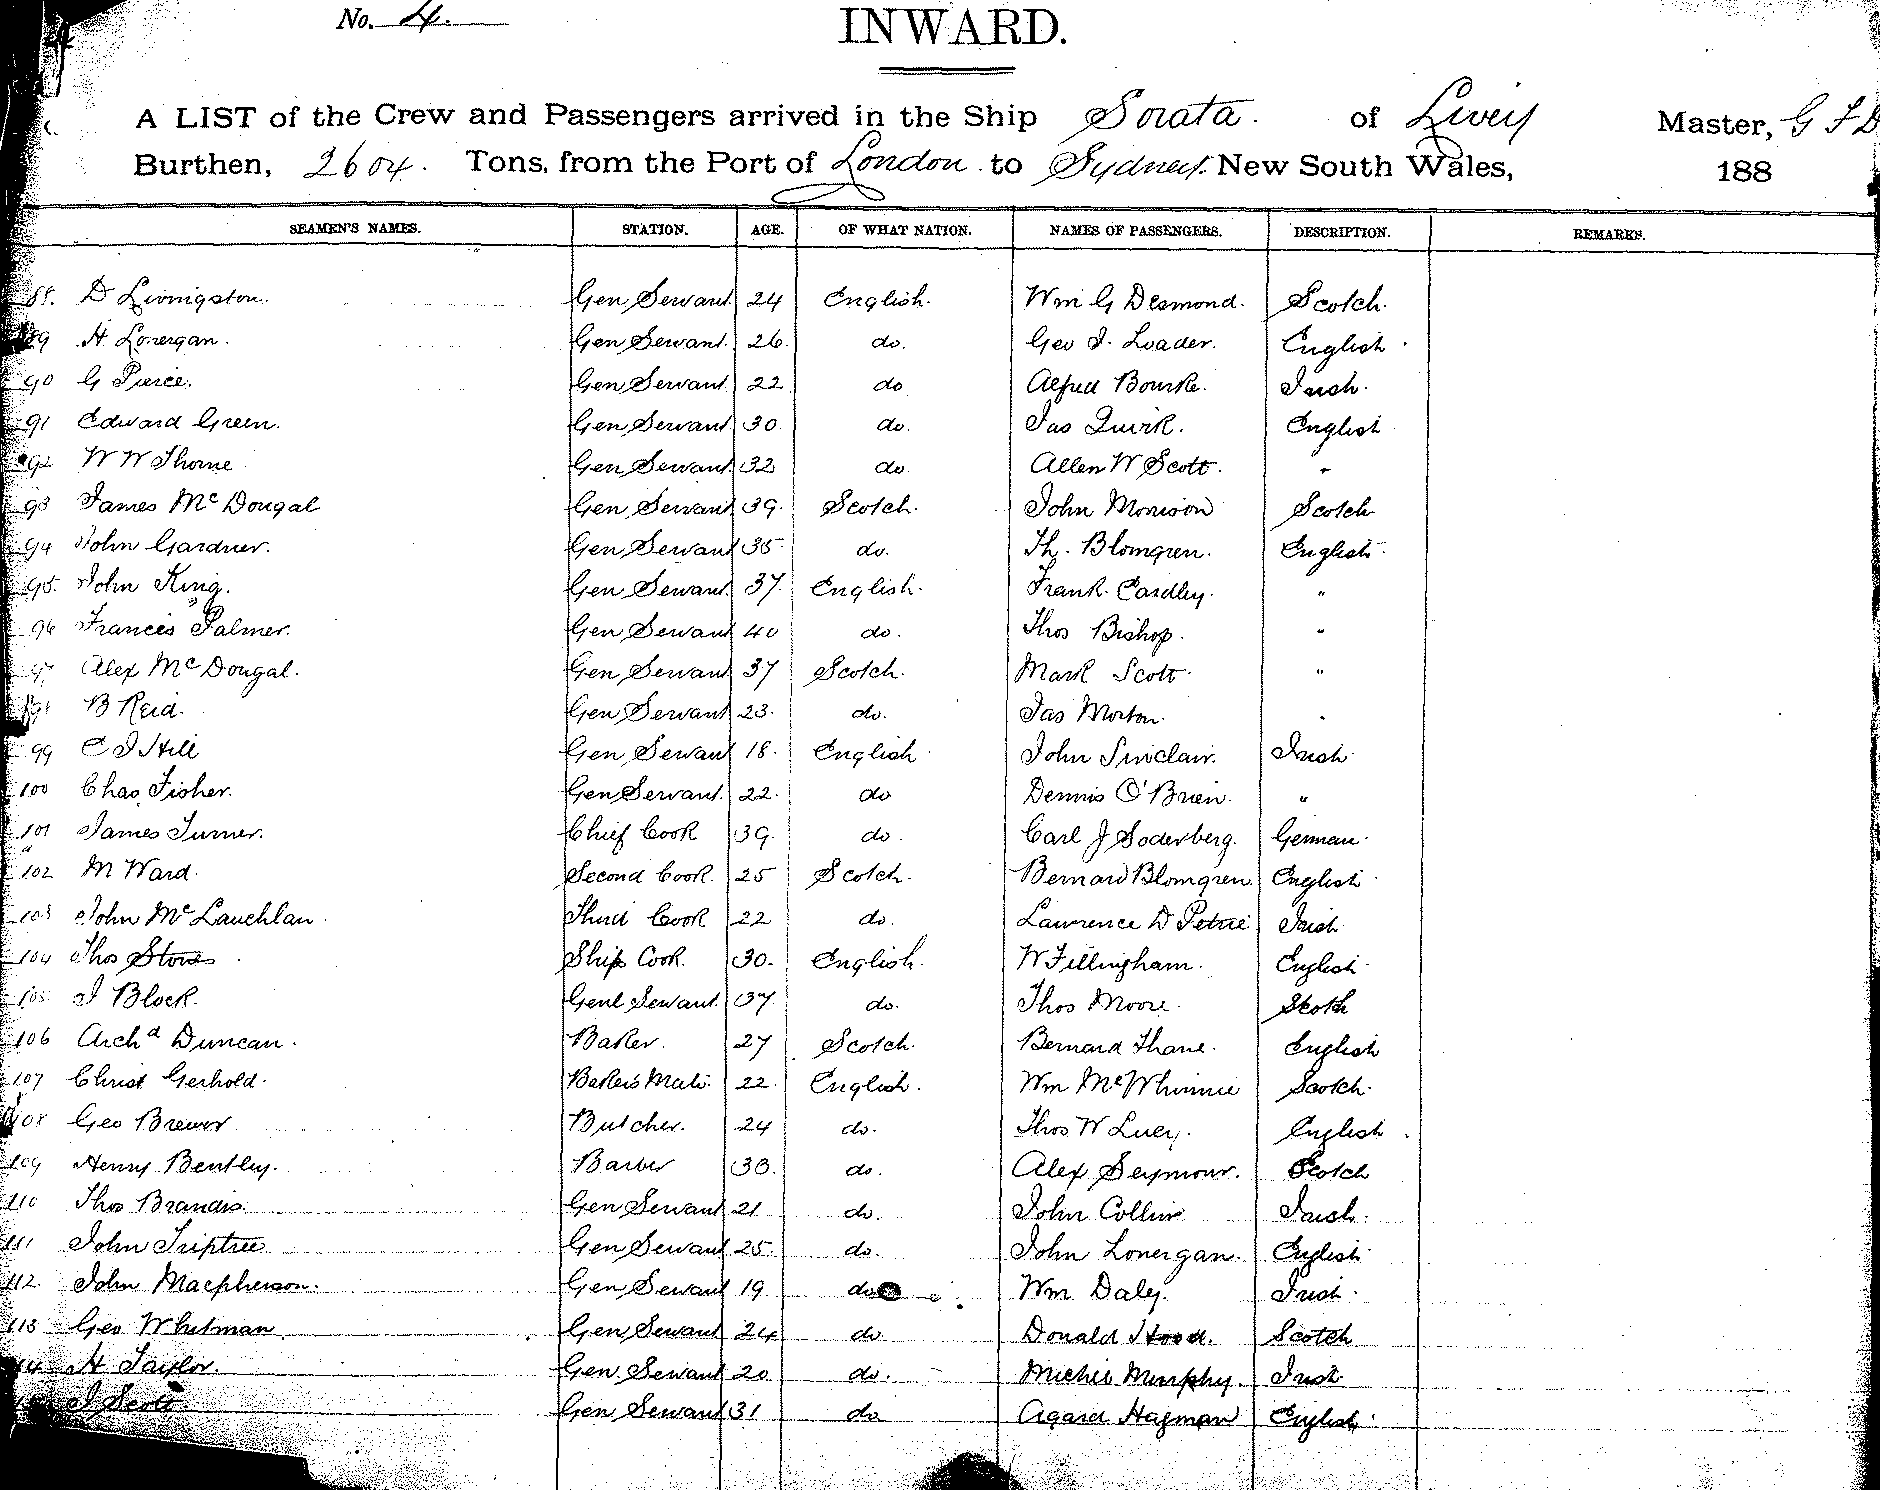 No. 4.
INWARD.
A LIST of the Crew and Passengers arrived in the Ship Sorata. of Master, G F D
Burthen, 2604. Tons, from the Port of London to Sydney. New South Wales, 188
SEAMEN'S NAMES. STATION. AGE. OF WHAT NATION. NAMES OF PASSENGERS. DESCRIPTION. REMARKS.
88. D Livingston. Gen Servant 24 English. Wm G Desmond. Scotch.
89 H Lonergan. Gen Servant. 26. do. Geo I. Loader. English.
90 G Pierce. Gen Servant 22 do Alfred Bourke. Irish.
91 Edward Green. Gen Servant 30. do. Jas Quirk. English
92 W W Thorne Gen Servant 32 do. Allen W Scott. "
93 James McDougal Gen Servant 39. Scotch. John Morrison Scotch
94 John Gardner. Gen Servant 35 do. Th. Blomgren. English.
95. John King. Gen Servant 37. English. Frank. Eardley. "
96 Frances Palmer. Gen Servant 40 do. Thos Bishop. "
97 Alex McDougal. Gen Servant 37 Scotch. Mark Scott. "
98 B Reid. Gen Servant 23. do. Jas Morton. "
99 C J Hill Gen Servant 18. English John Sinclair. Irish
100 Chas Fisher. Gen Servant. 22. do Dennis O'Brien. "
101 James Turner. Chief Cook 39. do. Carl J Soderberg. German.
102 M Ward. Second Cook. 25 Scotch. Bernard Blomgren. English
103 John McLauchlan. Third Cook 22 do. Lawrence D Petrie Irish
104 Thos Stones Ship Cook. 30. English. W Fillingham. English
105 J Block. Genl Servant. 37. do. Thos Moore. Scotch
106 Archd Duncan. Baker. 27 Scotch. Bernard Thane. English
107 Christ Gerhold. Baker's Mate. 22. English. Wm McWhinnie Scotch.
108 Geo Brewer Butcher. 24 do. Thos W Lucy. English.
109 Henry Bentley. Barber 38. do. Alex Seymour. Scotch
110 Thos Brandis. Gen Servant 21 do. John Collins Irish.
111 John Triptree Gen Servant 25. do. John Lonergan. English
112 John Macpherson. Gen Servant 19 do Wm Daley. Irish.
113 Geo Whitman. Gen Servant 24 do. Donald Hood. Scotch
114 H Taylor. Gen Servant 20 do. Michl Murphy. Irish
J Scott Gen Servant 31 do Agard Hagman English.